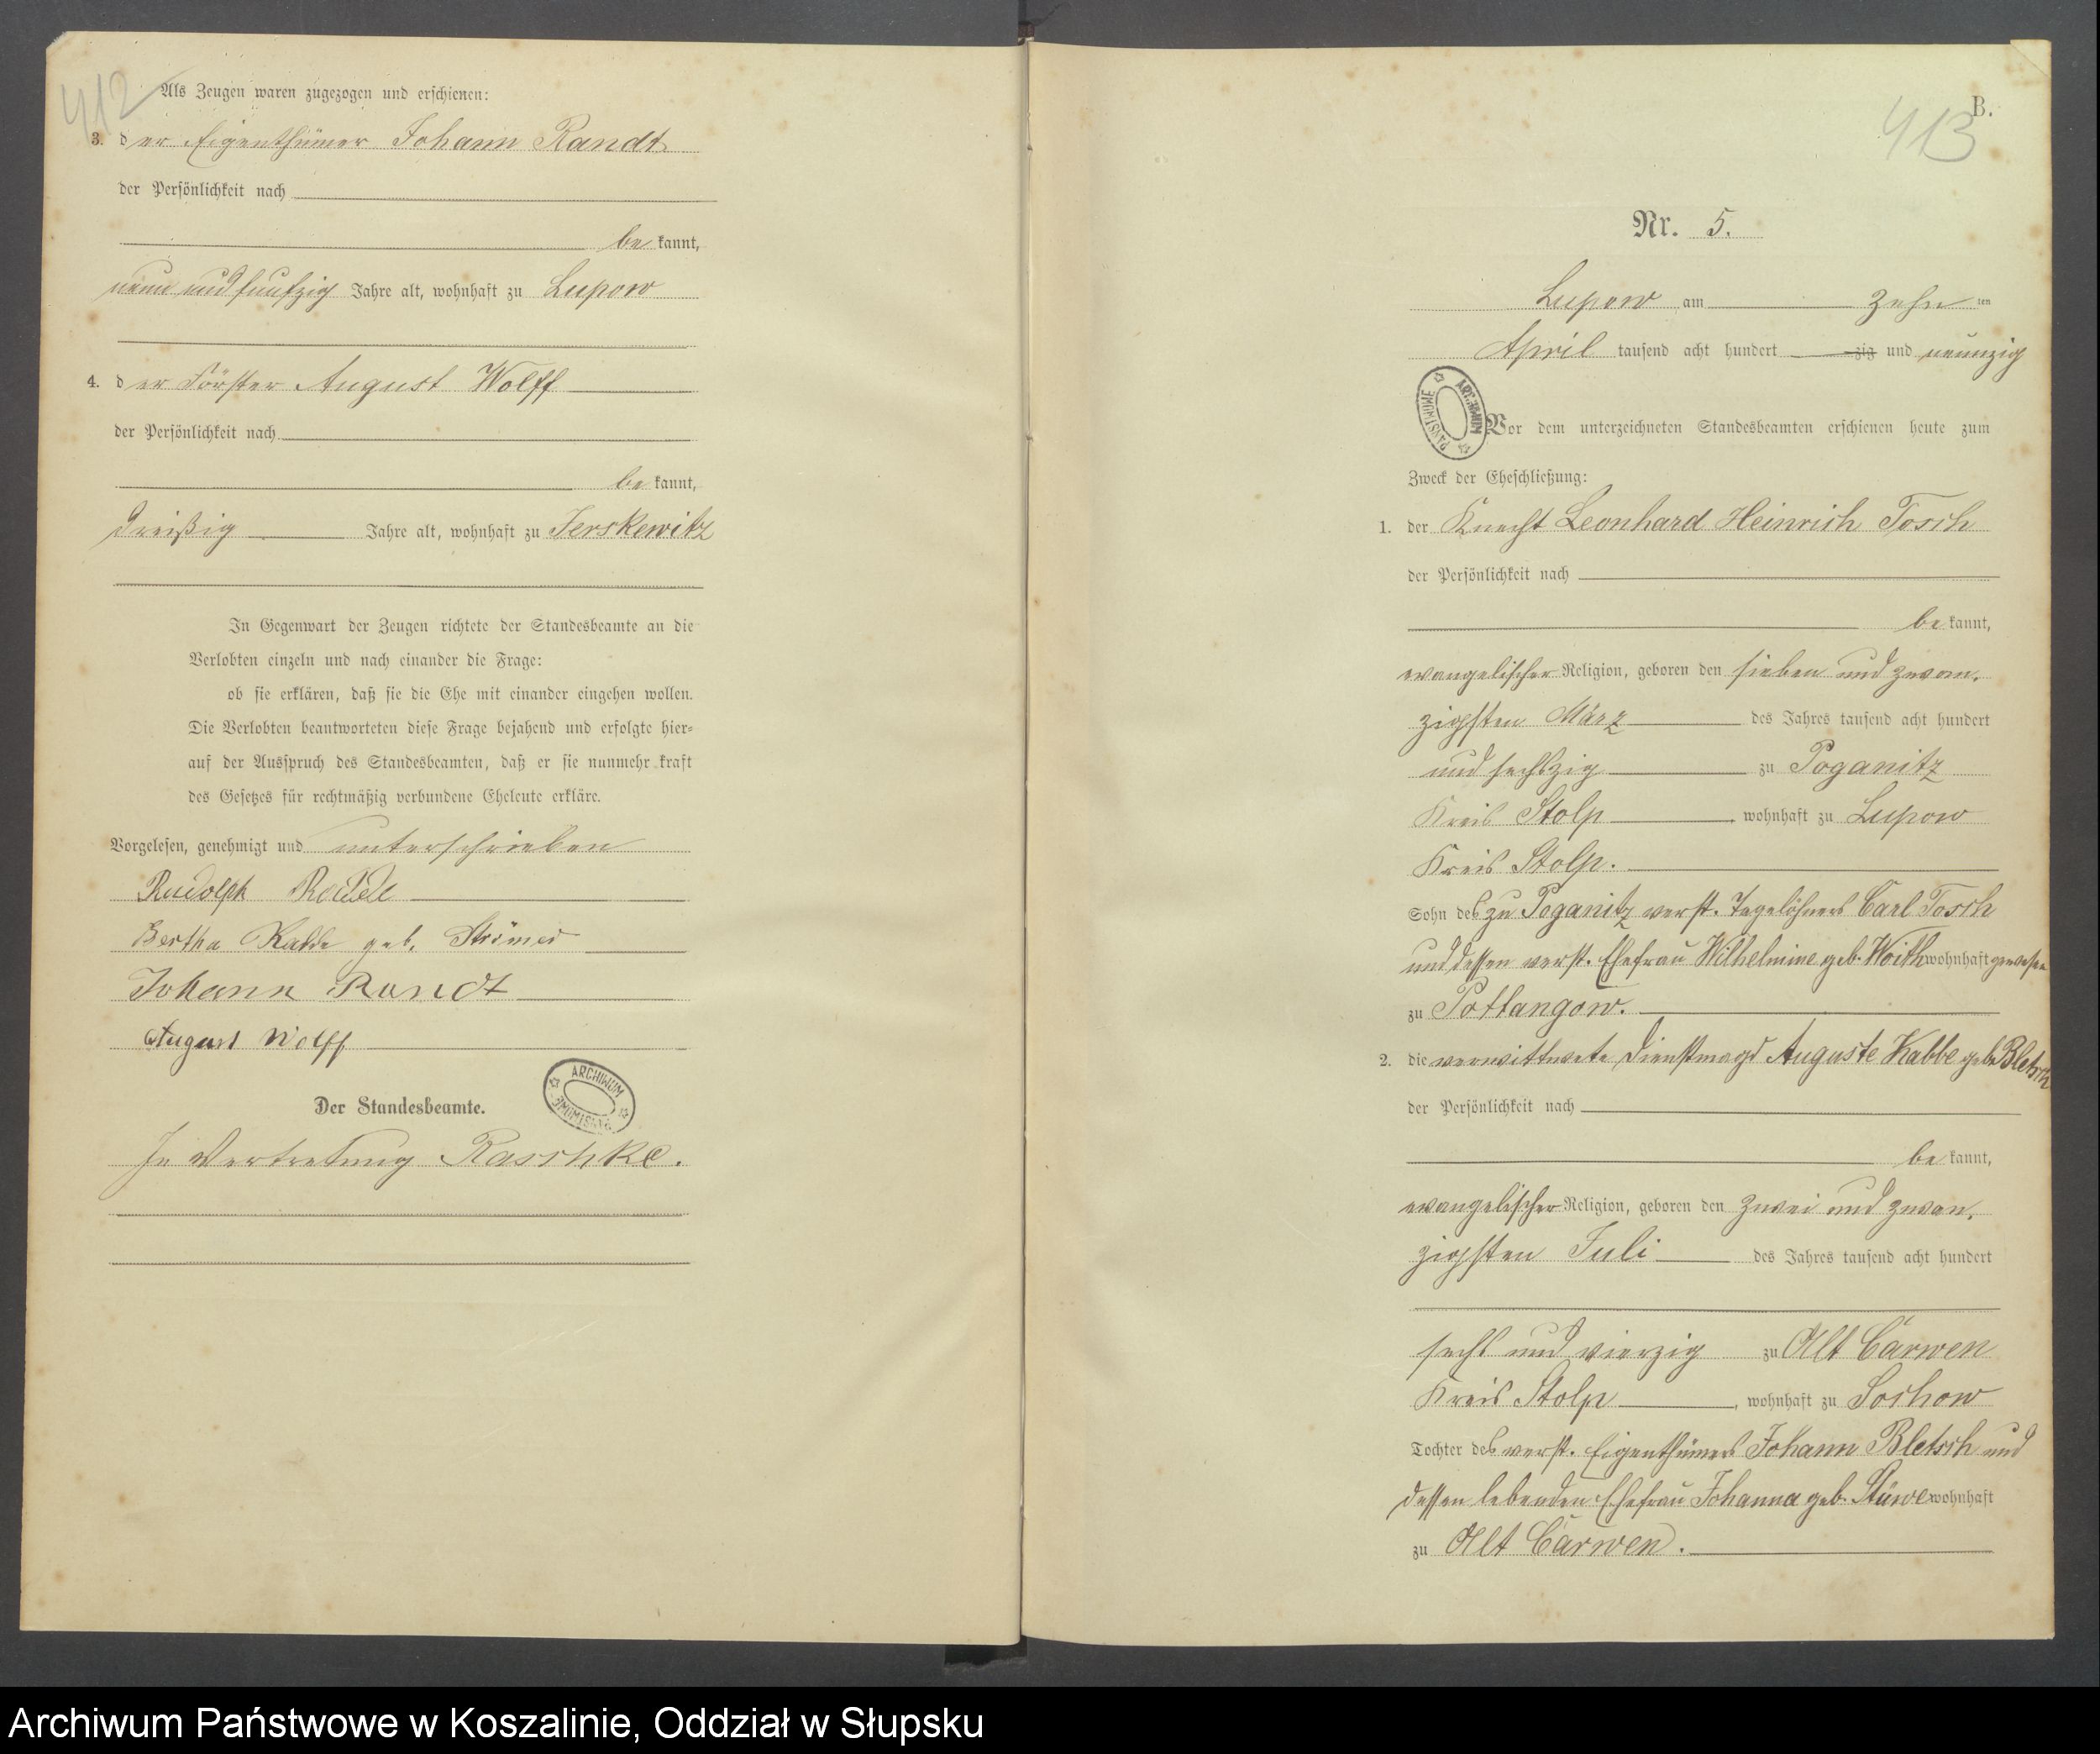 412
Als Zeugen waren zugezogen und erschienen:
3. der Eigenthümer Johann Randt
der Persönlichkeit nach
be kannt,
neun und fünfzig Jahre alt, wohnhaft zu Lupow
4. der Förster August Wolff
der Persönlichkeit nach
be kannt,
dreißig Jahre alt, wohnhaft zu Jerskewitz
In Gegenwart der Zeugen richtete der Standesbeamte an die
Verlobten einzeln und nach einander die Frage:
ob sie erklären, daß sie die Ehe mit einander eingehen wollen.
Die Verlobten beantworteten diese Frage bejahend und erfolgte hier-
auf der Ausspruch des Standesbeamten, daß er sie nunmehr kraft
des Gesetzes für rechtmäßig verbundene Eheleute erkläre.
Vorgelesen, genehmigt und unterschrieben
Rudolph
Bertha geb.
Johann Randt
August Wolff
ARCHIWUM PAŃSTWOWE
Der Standesbeamte.
In Vertretung Raschke.
B.
413
Nr. 5.
Lupow am zehn ten
April tausend acht hundert zig und neunzig
ARCHIWUM PAŃSTWOWE
Vor dem unterzeichneten Standesbeamten erschienen heute zum
Zweck der Eheschließung:
1. der Knecht Leonhard Heinrich Tosch
der Persönlichkeit nach
be kannt,
evangelischer Religion, geboren den sieben und zwan-
zigsten März des Jahres tausend acht hundert
und sechszig zu Poganitz
Kreis Stolp, wohnhaft zu Lupow
Kreis Stolp.
Sohn des zu Poganitz verst. Tagelöhners Carl Tosch
und dessen verst. Ehefrau Wilhelmine geb. Woith wohnhaft gewesen
zu Pottangow.
2. die verwittwete Dienstmagd Auguste Kabbe geb. Bletsch
der Persönlichkeit nach
be kannt,
evangelischer Religion, geboren den zwei und zwan-
zigsten Juli des Jahres tausend acht hundert
sechs und vierzig zu Alt Carwen
Kreis Stolp, wohnhaft zu Sochow
Tochter des verst. Eigenthümers Johann Bletsch und
dessen lebenden Ehefrau Johanna geb. Stüwe wohnhaft
zu Alt Carwen.
Archiwum Państwowe w Koszalinie, Oddział w Słupsku